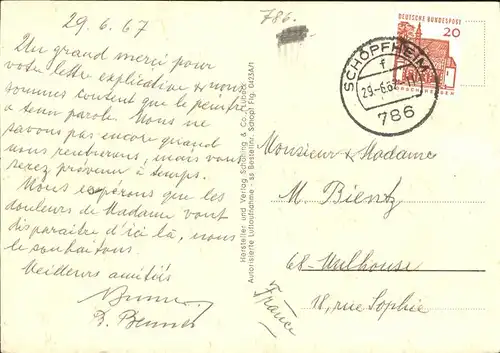 29.6.67
Un grand merci pour
votre lettre explicative et nous
sommes content que le peintre
a tenu parole. Nous ne
savons pas encore quand
nous rentrerons, mais vous
serez prévenu à temps.
Nous esperons que les
douleurs de Madame vont
disparaître d'ici là, nous
le souhaitons.
Meilleurs amitiés
Hersteller und Verlag Schöning & Co., Lübeck
Autorisierte Luftaufnahme
786.
DEUTSCHE BUNDESPOST
20
SCHOPFHEIM
f
29.-6.67
786
Monsieur & Madame
M. Bientz
68-Mulhouse
18, rue Sophie
France